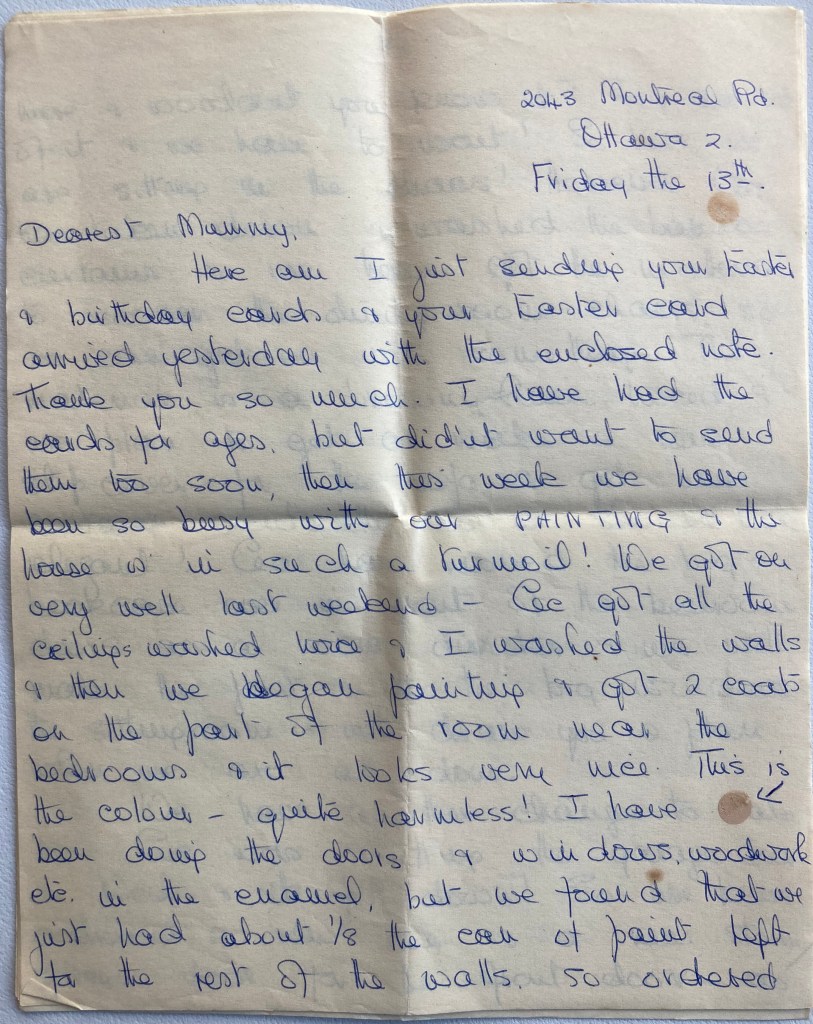 2043 Montreal Rd.
Ottawa 2.
Friday the 13th.
Dearest Mummy,
Here am I just sending your Easter
& birthday cards & your Easter card
arrived yesterday with the enclosed note.
Thank you so much. I have had the
cards for ages, but did'nt want to send
them too soon, then this week we have
been so busy with our PAINTING & the
house is in such a turmoil! We got on
very well last weekend - Cec got all the
ceilings washed twice & I washed the walls
& then we began painting & got 2 coats
on the part of the room near the
bedrooms & it looks very nice. This is
the colour - quite harmless! I have
been doing the doors & windows, woodwork
etc. in the enamel, but we found that we
just had about 1/8 the can of paint left
for the rest of the walls, so ordered